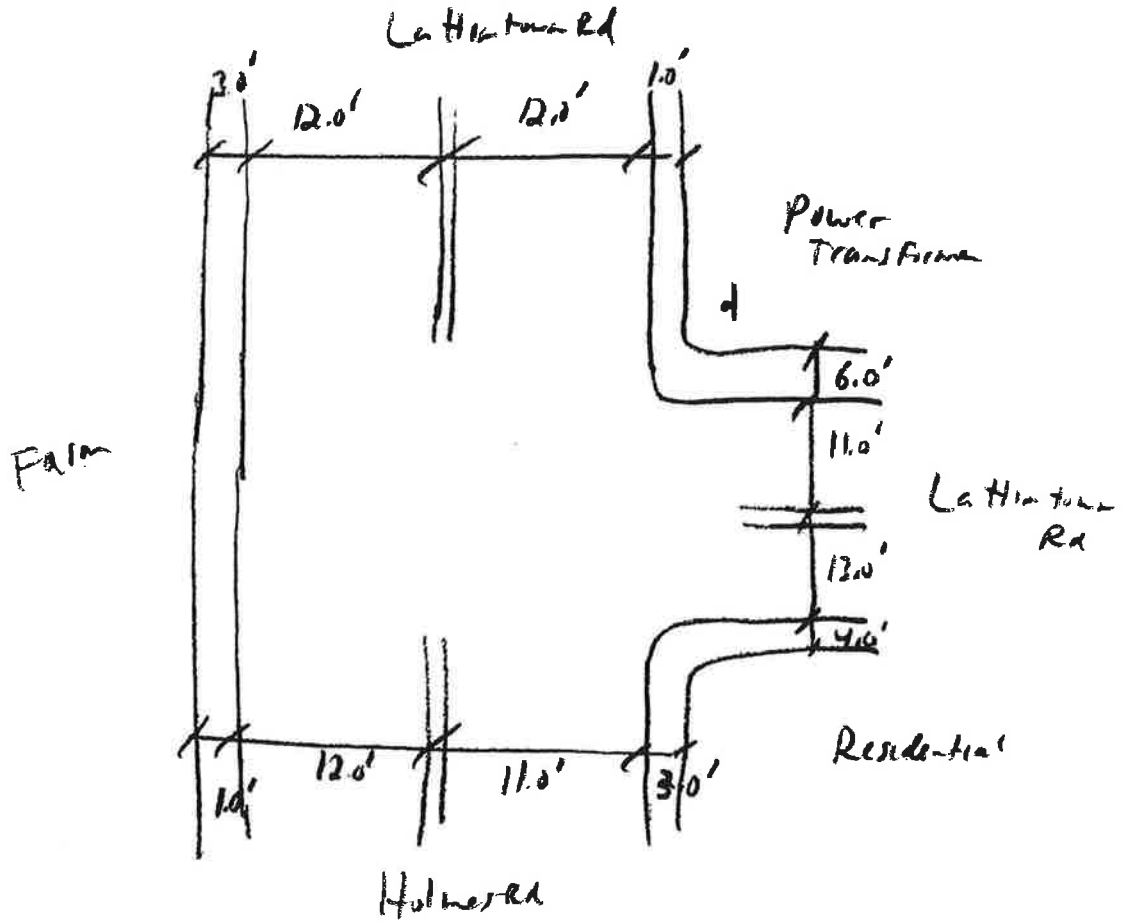 Lattintown Rd
3.0'
1.0'
12.0'
12.0'
Power
Transformer
6.0'
11.0'
Farm
Lattintown
Rd
13.0'
4.0'
Residential
12.0'
11.0'
3.0'
1.0'
Holmes Rd